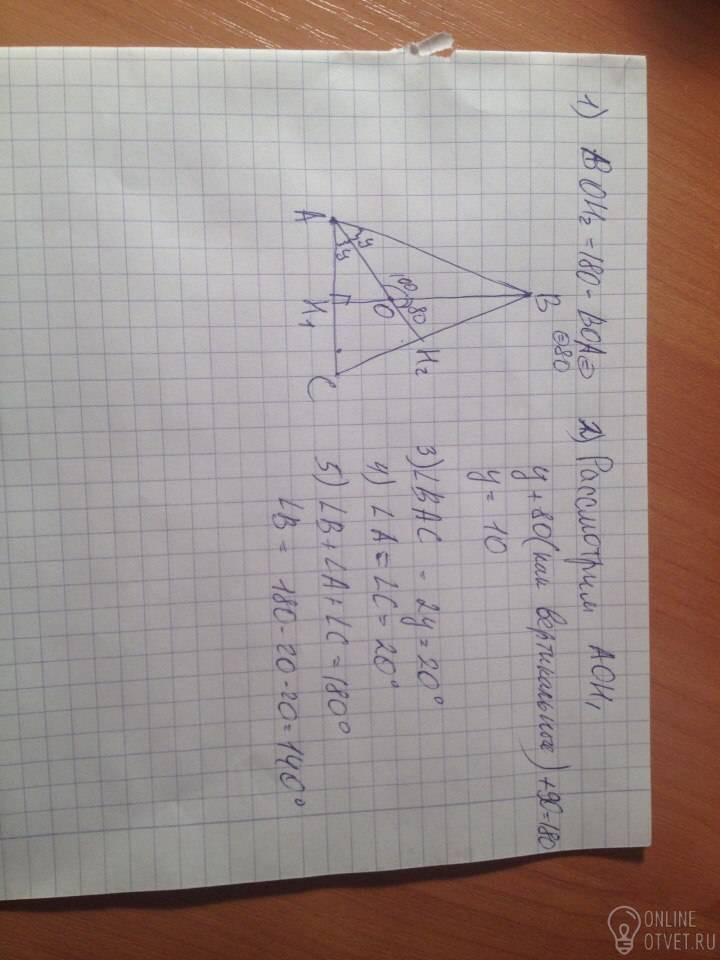 1) BOH₂ = 180 - BOA =
= 80
B
H₂
100
80
O
y
y
A
H₁
C
2) Рассмотрим AOH₁
y + 80 (как вертикальных) + 90 = 180
y = 10
3) ∠BAC = 2y = 20°
4) ∠A = ∠C = 20°
5) ∠B + ∠A + ∠C = 180°
∠B = 180 - 20 - 20 = 140°
ONLINE
OTVET.RU